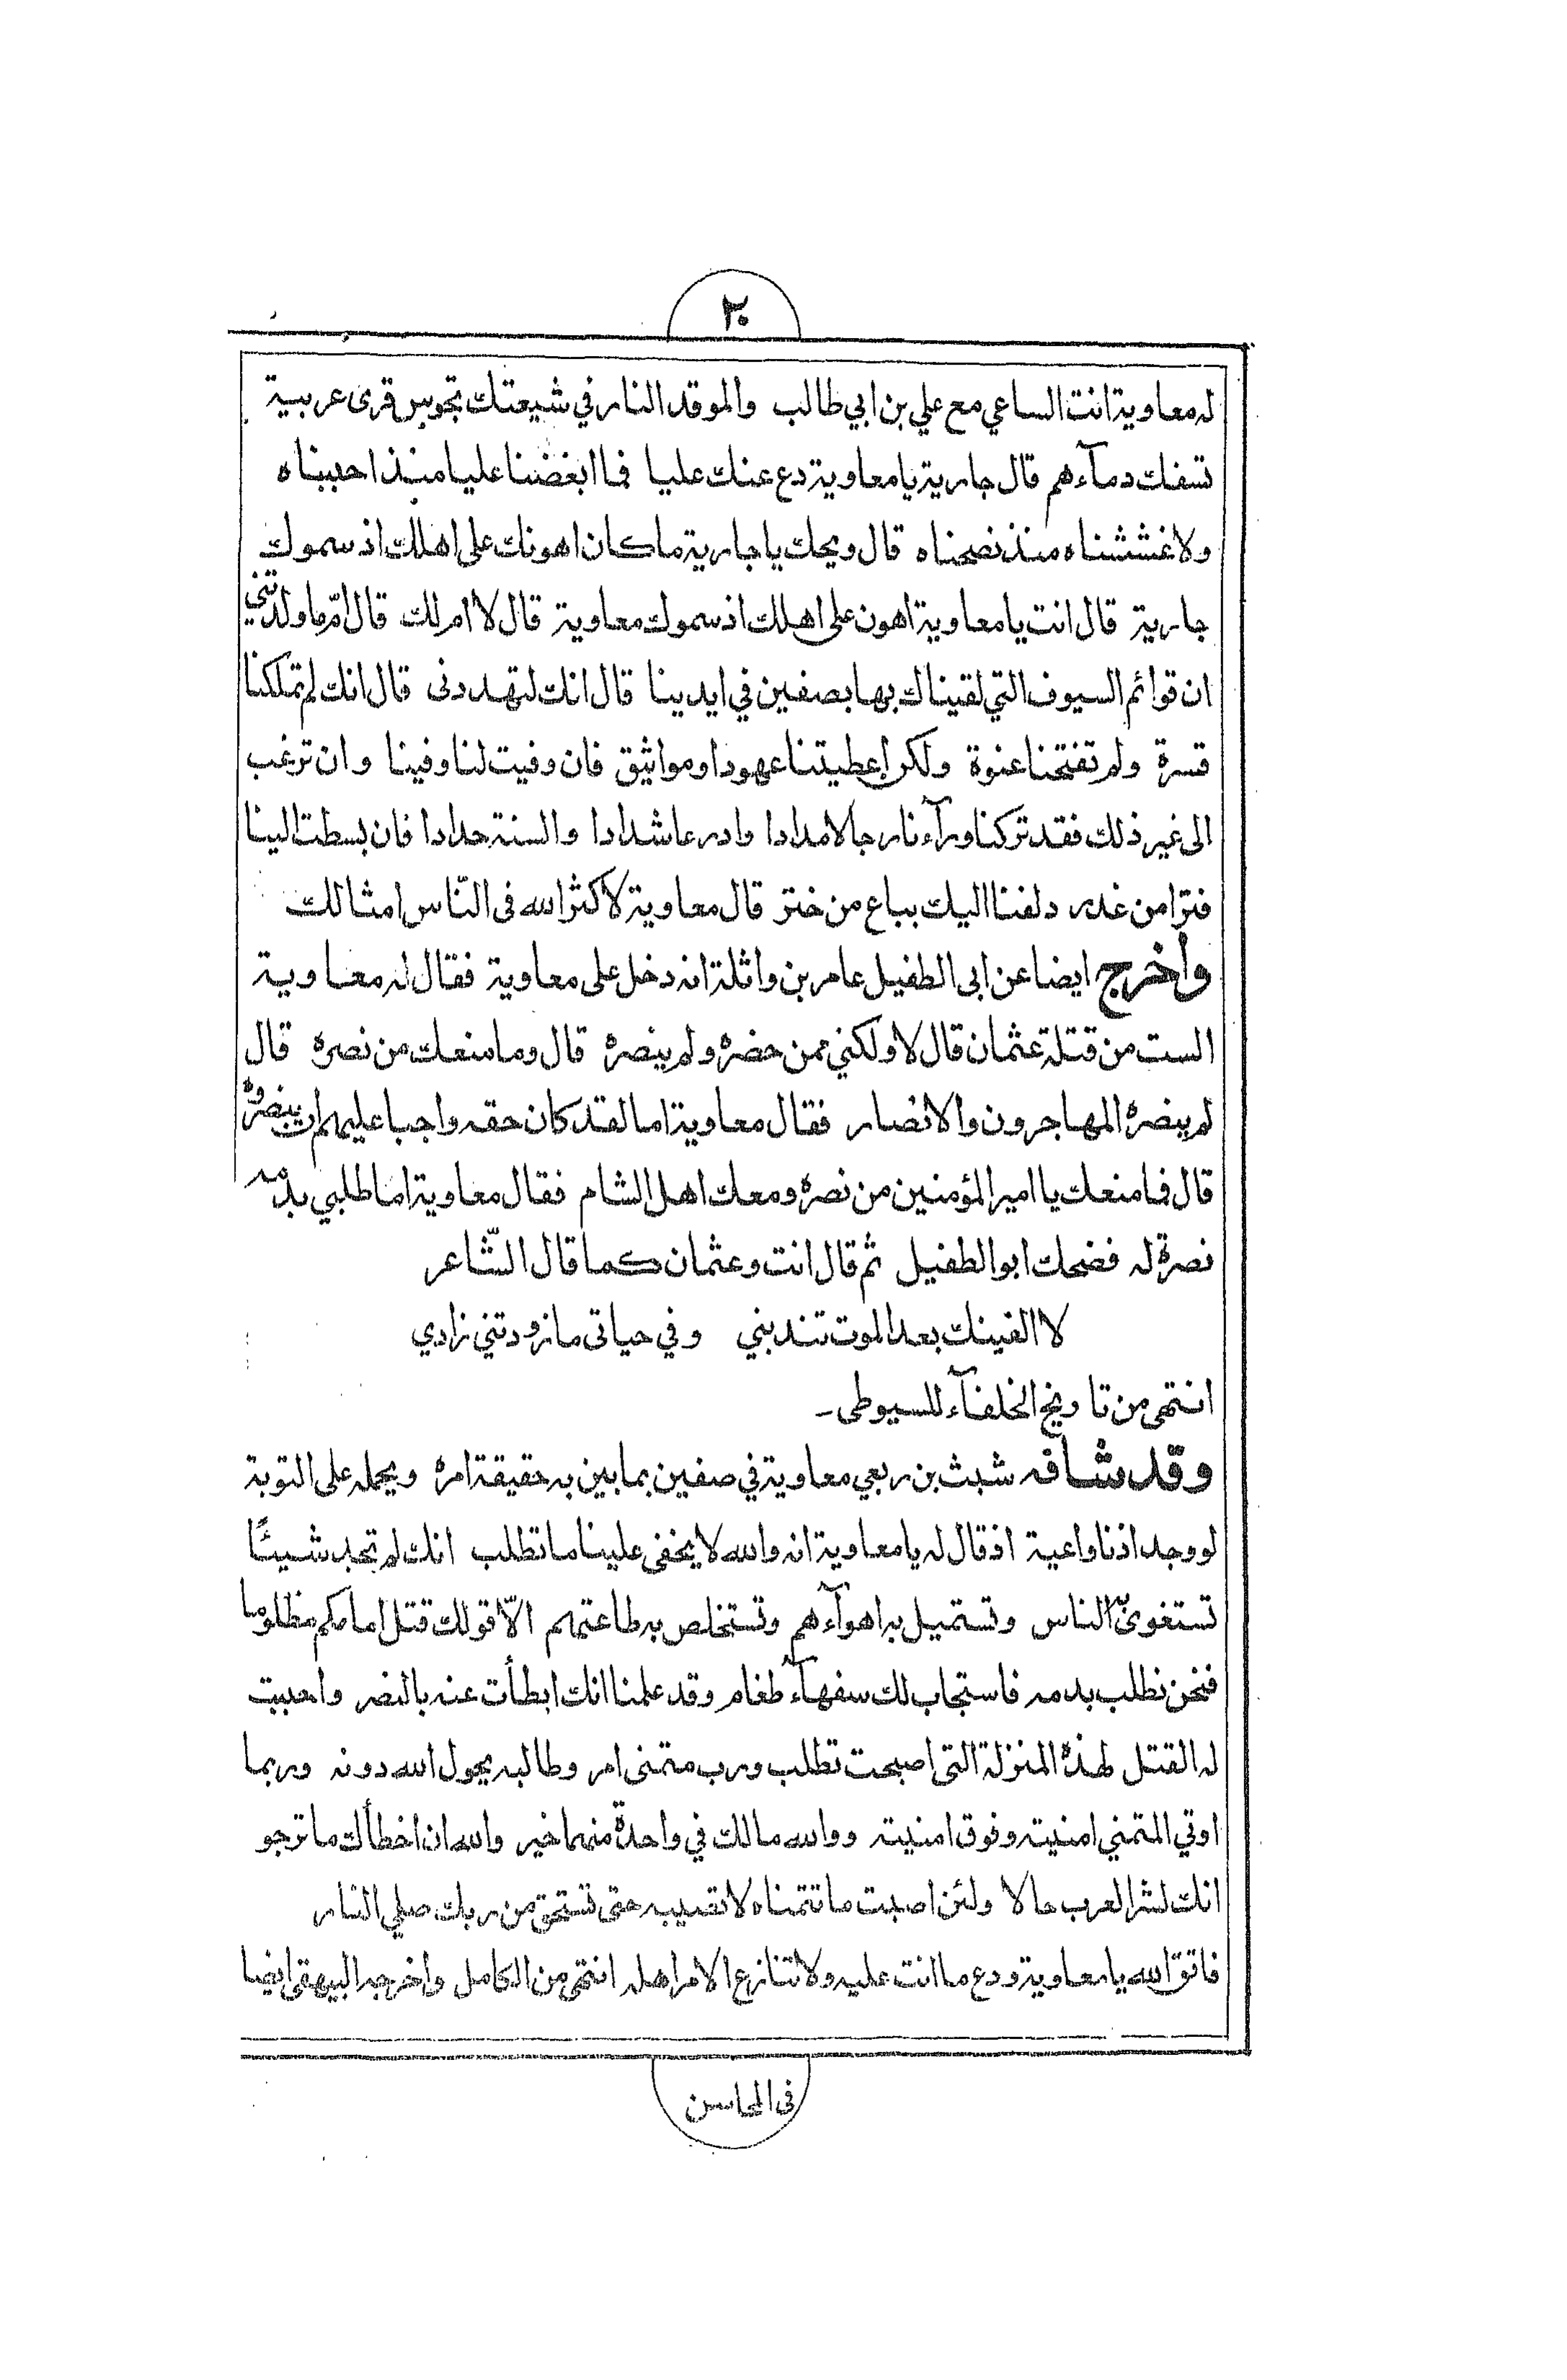 ٢٠
له معاوية انت الساعي مع علي بن ابي طالب والموقد النار في شيعتك تجوس قرى عربية
تسفك دمآءهم قال جارية يا معاوية دع عنك عليا فما ابغضنا عليا منذ احببناه
ولا غششناه منذ نصحناه قال ويحك يا جارية ما كان اهونك على اهلك اذ سموك
جارية قال انت يا معاوية اهون على اهلك اذ سموك معاوية قال لا ام لك قال امّ ما ولدتني
ان قوائم السيوف التي لقيناك بها بصفين في ايدينا قال انك لتهددنى قال انك لم تملكنا
قسرة ولم تفتحنا عنوة ولكن اعطيتنا عهودا ومواثيق فان وفيت لنا وفينا وان ترغب
الى غير ذلك فقد تركنا ورآءنا رجالا مدادا وادرعا شدادا والسنة حدادا فان بسطت الينا
فترا من غدر دلفنا اليك بباع من ختر قال معاوية لا كثر الله فى النّاس امثالك
وأخرج ايضا عن ابى الطفيل عامر بن واثلة انه دخل على معاوية فقال له معاوية
الست من قتلة عثمان قال لا ولكني ممن حضره ولم ينصره قال وما منعك من نصره قال
لم ينصره المهاجرون والانصار فقال معاوية اما لقد كان حقه واجبا عليهم ان ينصروه
قال فما منعك يا امير المؤمنين من نصره ومعك اهل الشام فقال معاوية اما طلبي بدمه
نصرة له فضحك ابو الطفيل ثم قال انت وعثمان كما قال الشّاعر
لا الفينك بعد الموت تندبني وفي حياتى ما زودتني زادي
انتهى من تاريخ الخلفآء للسيوطى ـ
وقد شافه شبث بن ربعي معاوية في صفين بما بين به حقيقة امره ويحمله على التوبة
لو وجد اذنا واعية اذ قال له يا معاوية انه والله لا يخفى علينا ما تطلب انك لم تجد شيئًا
تستغوى به الناس وتستميل به اهوآءهم وتستخلص به طاعتهم الّا قولك قتل امامكم مظلوما
فنحن نطلب بدمه فاستجاب لك سفهآء طغام وقد علمنا انك ابطأت عنه بالنصر واحببت
له القتل لهذه المنزلة التى اصبحت تطلب ورب متمنى امر وطالبه يحول الله دونه وربما
اوتي المتمني امنيته وفوق امنيته ووالله مالك في واحدة منهما خير والله ان اخطأك ما ترجو
انك لشر العرب حالا ولئن اصبت ما تتمناه لا تصيبه حتى تستحق من ربك صلي النار
فاتق الله يا معاوية ودع ما انت عليه ولا تنازع الامر اهله انتهى من الكامل واخرجه البيهقى ايضا
فى المحاسن